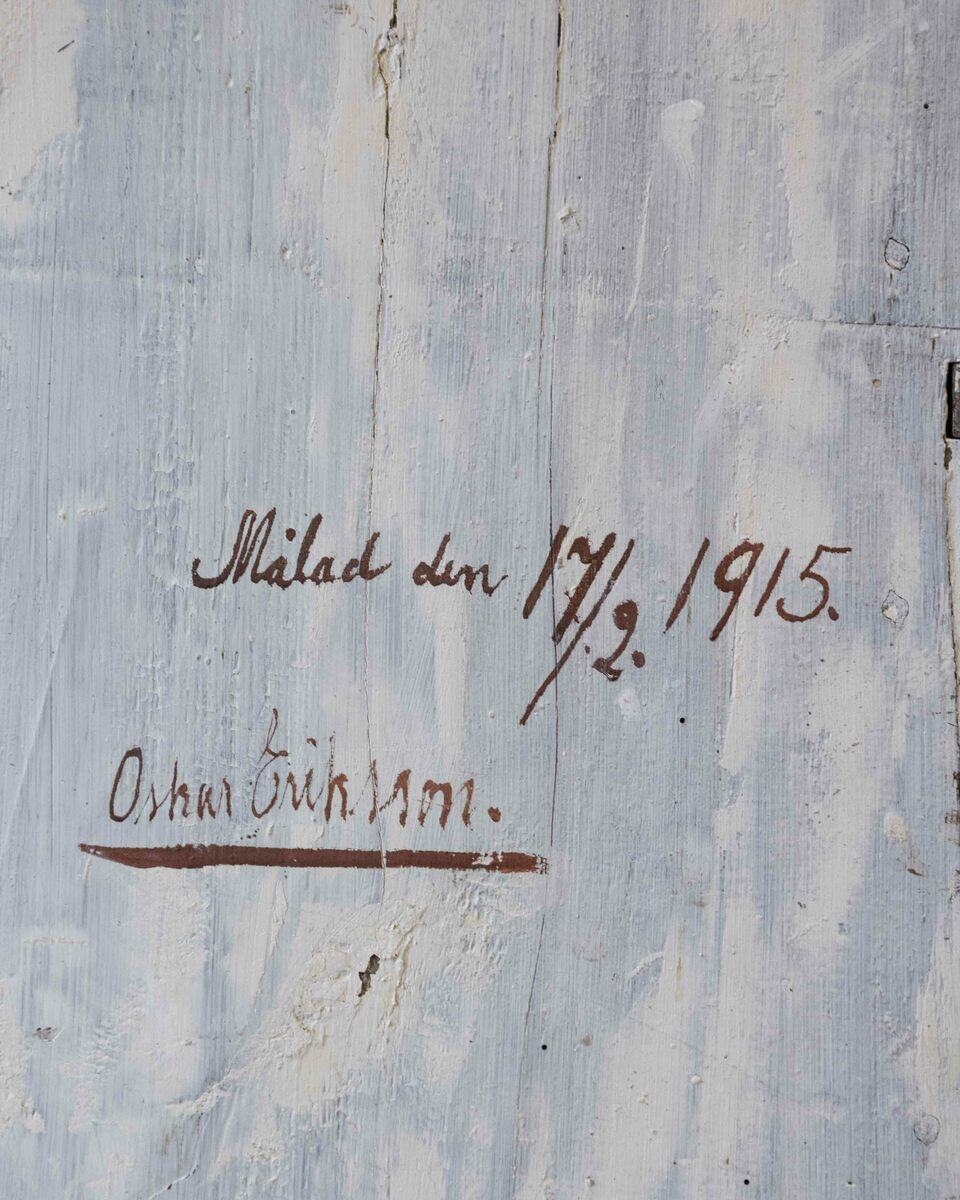 Målad den 17/2. 1915.
Oskar Eriksson.